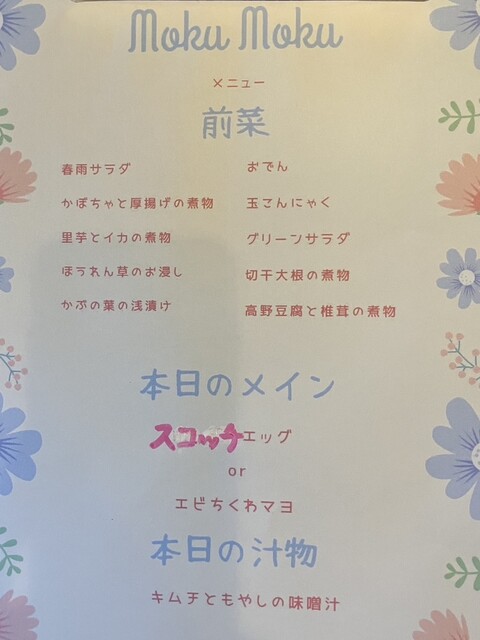 Moku Moku
メニュー
前菜
春雨サラダ
かぼちゃと厚揚げの煮物
里芋とイカの煮物
ほうれん草のお浸し
かぶの葉の浅漬け
おでん
玉こんにゃく
グリーンサラダ
切干大根の煮物
高野豆腐と椎茸の煮物
本日のメイン
スコッチエッグ
or
エビちくわマヨ
本日の汁物
キムチともやしの味噌汁